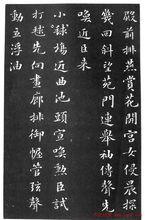 殿前排燕賞花開宮女侵晨探
幾回斜望苑門連舉袖傳聲先
喚近臣来
小毬場近曲池頭宣喚勲臣試
打毬先向畫廊排御幄管弦聲
動立浮油